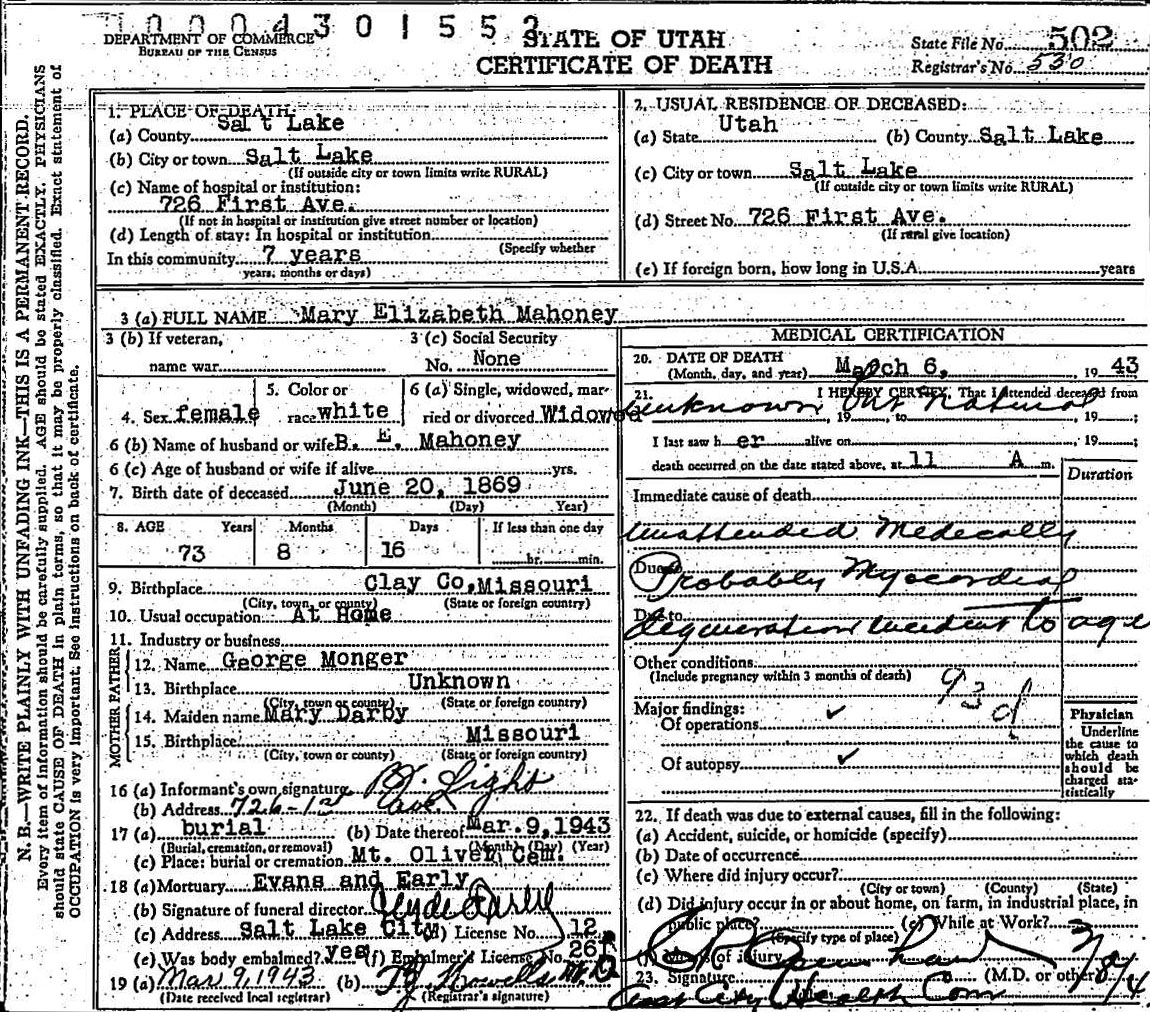 0004301552
DEPARTMENT OF COMMERCE
BUREAU OF THE CENSUS
STATE OF UTAH
CERTIFICATE OF DEATH
State File No. 502
Registrar's No. 530
N. B.—WRITE PLAINLY WITH UNFADING INK—THIS IS A PERMANENT RECORD.
Every item of information should be carefully supplied. AGE should be stated EXACTLY. PHYSICIANS
should state CAUSE OF DEATH in plain terms, so that it may be properly classified. Exact statement of
OCCUPATION is very important. See instructions on back of certificate.
1. PLACE OF DEATH
(a) County Salt Lake
(b) City or town Salt Lake
(If outside city or town limits write RURAL)
(c) Name of hospital or institution:
726 First Ave.
(If not in hospital or institution give street number or location)
(d) Length of stay: In hospital or institution
(Specify whether
In this community 7 years
years, months or days)
2. USUAL RESIDENCE OF DECEASED:
(a) State Utah (b) County Salt Lake
(c) City or town Salt Lake
(If outside city or town limits write RURAL)
(d) Street No. 726 First Ave.
(If rural give location)
(e) If foreign born, how long in U.S.A. years
3 (a) FULL NAME Mary Elizabeth Mahoney
3 (b) If veteran, name war
3 (c) Social Security No. None
4. Sex female
5. Color or race white
6 (a) Single, widowed, married or divorced Widowed
6 (b) Name of husband or wife B. E. Mahoney
6 (c) Age of husband or wife if alive yrs.
7. Birth date of deceased June 20, 1869
(Month) (Day) Year)
8. AGE Years Months Days If less than one day
73 8 16 hr. min.
9. Birthplace Clay Co, Missouri
(City, town, or county) (State or foreign country)
10. Usual occupation At Home
11. Industry or business
FATHER
12. Name George Monger
13. Birthplace Unknown
(City, town or county) (State or foreign country)
MOTHER
14. Maiden name Mary Darby
15. Birthplace Missouri
(City, town or county) (State or foreign country)
16 (a) Informant's own signature Light
(b) Address 726-1st Ave
17 (a) burial (b) Date thereof Mar. 9, 1943
(Burial, cremation, or removal) (Month) (Day) (Year)
(c) Place: burial or cremation Mt. Olivet Cem.
18 (a) Mortuary Evans and Early
(b) Signature of funeral director Clyde Early
(c) Address Salt Lake City License No. 12
(e) Was body embalmed? yes (f) Embalmer's License No. 26
19 (a) Mar 9, 1943 (b) Howells M.D.
(Date received local registrar) (Registrar's signature)
MEDICAL CERTIFICATION
20. DATE OF DEATH
(Month, day, and year) March 6, 19 43
21. I HEREBY CERTIFY, That I attended deceased from
unknown 19 , to 19 ;
I last saw h er alive on , 19 ;
death occurred on the date stated above, at 11 A m.
Duration
Immediate cause of death
Unattended Medecally
Due to
Probably Myocordial
Due to
degeneration incident to age
Other conditions
(Include pregnancy within 3 months of death)
93d
Major findings:
Of operations ✓
Of autopsy ✓
Physician
Underline
the cause to
which death
should be
charged sta-
tistically
22. If death was due to external causes, fill in the following:
(a) Accident, suicide, or homicide (specify)
(b) Date of occurrence
(c) Where did injury occur?
(City or town) (County) (State)
(d) Did injury occur in or about home, on farm, in industrial place, in
public place? (e) While at Work?
(Specify type of place)
(f) Means of injury
23. Signature (M.D. or other)
Asst City Health Com